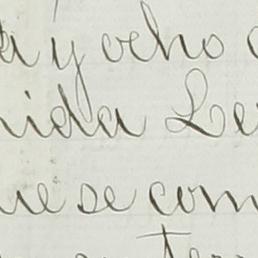 a y ocho
nida Le
ue se com